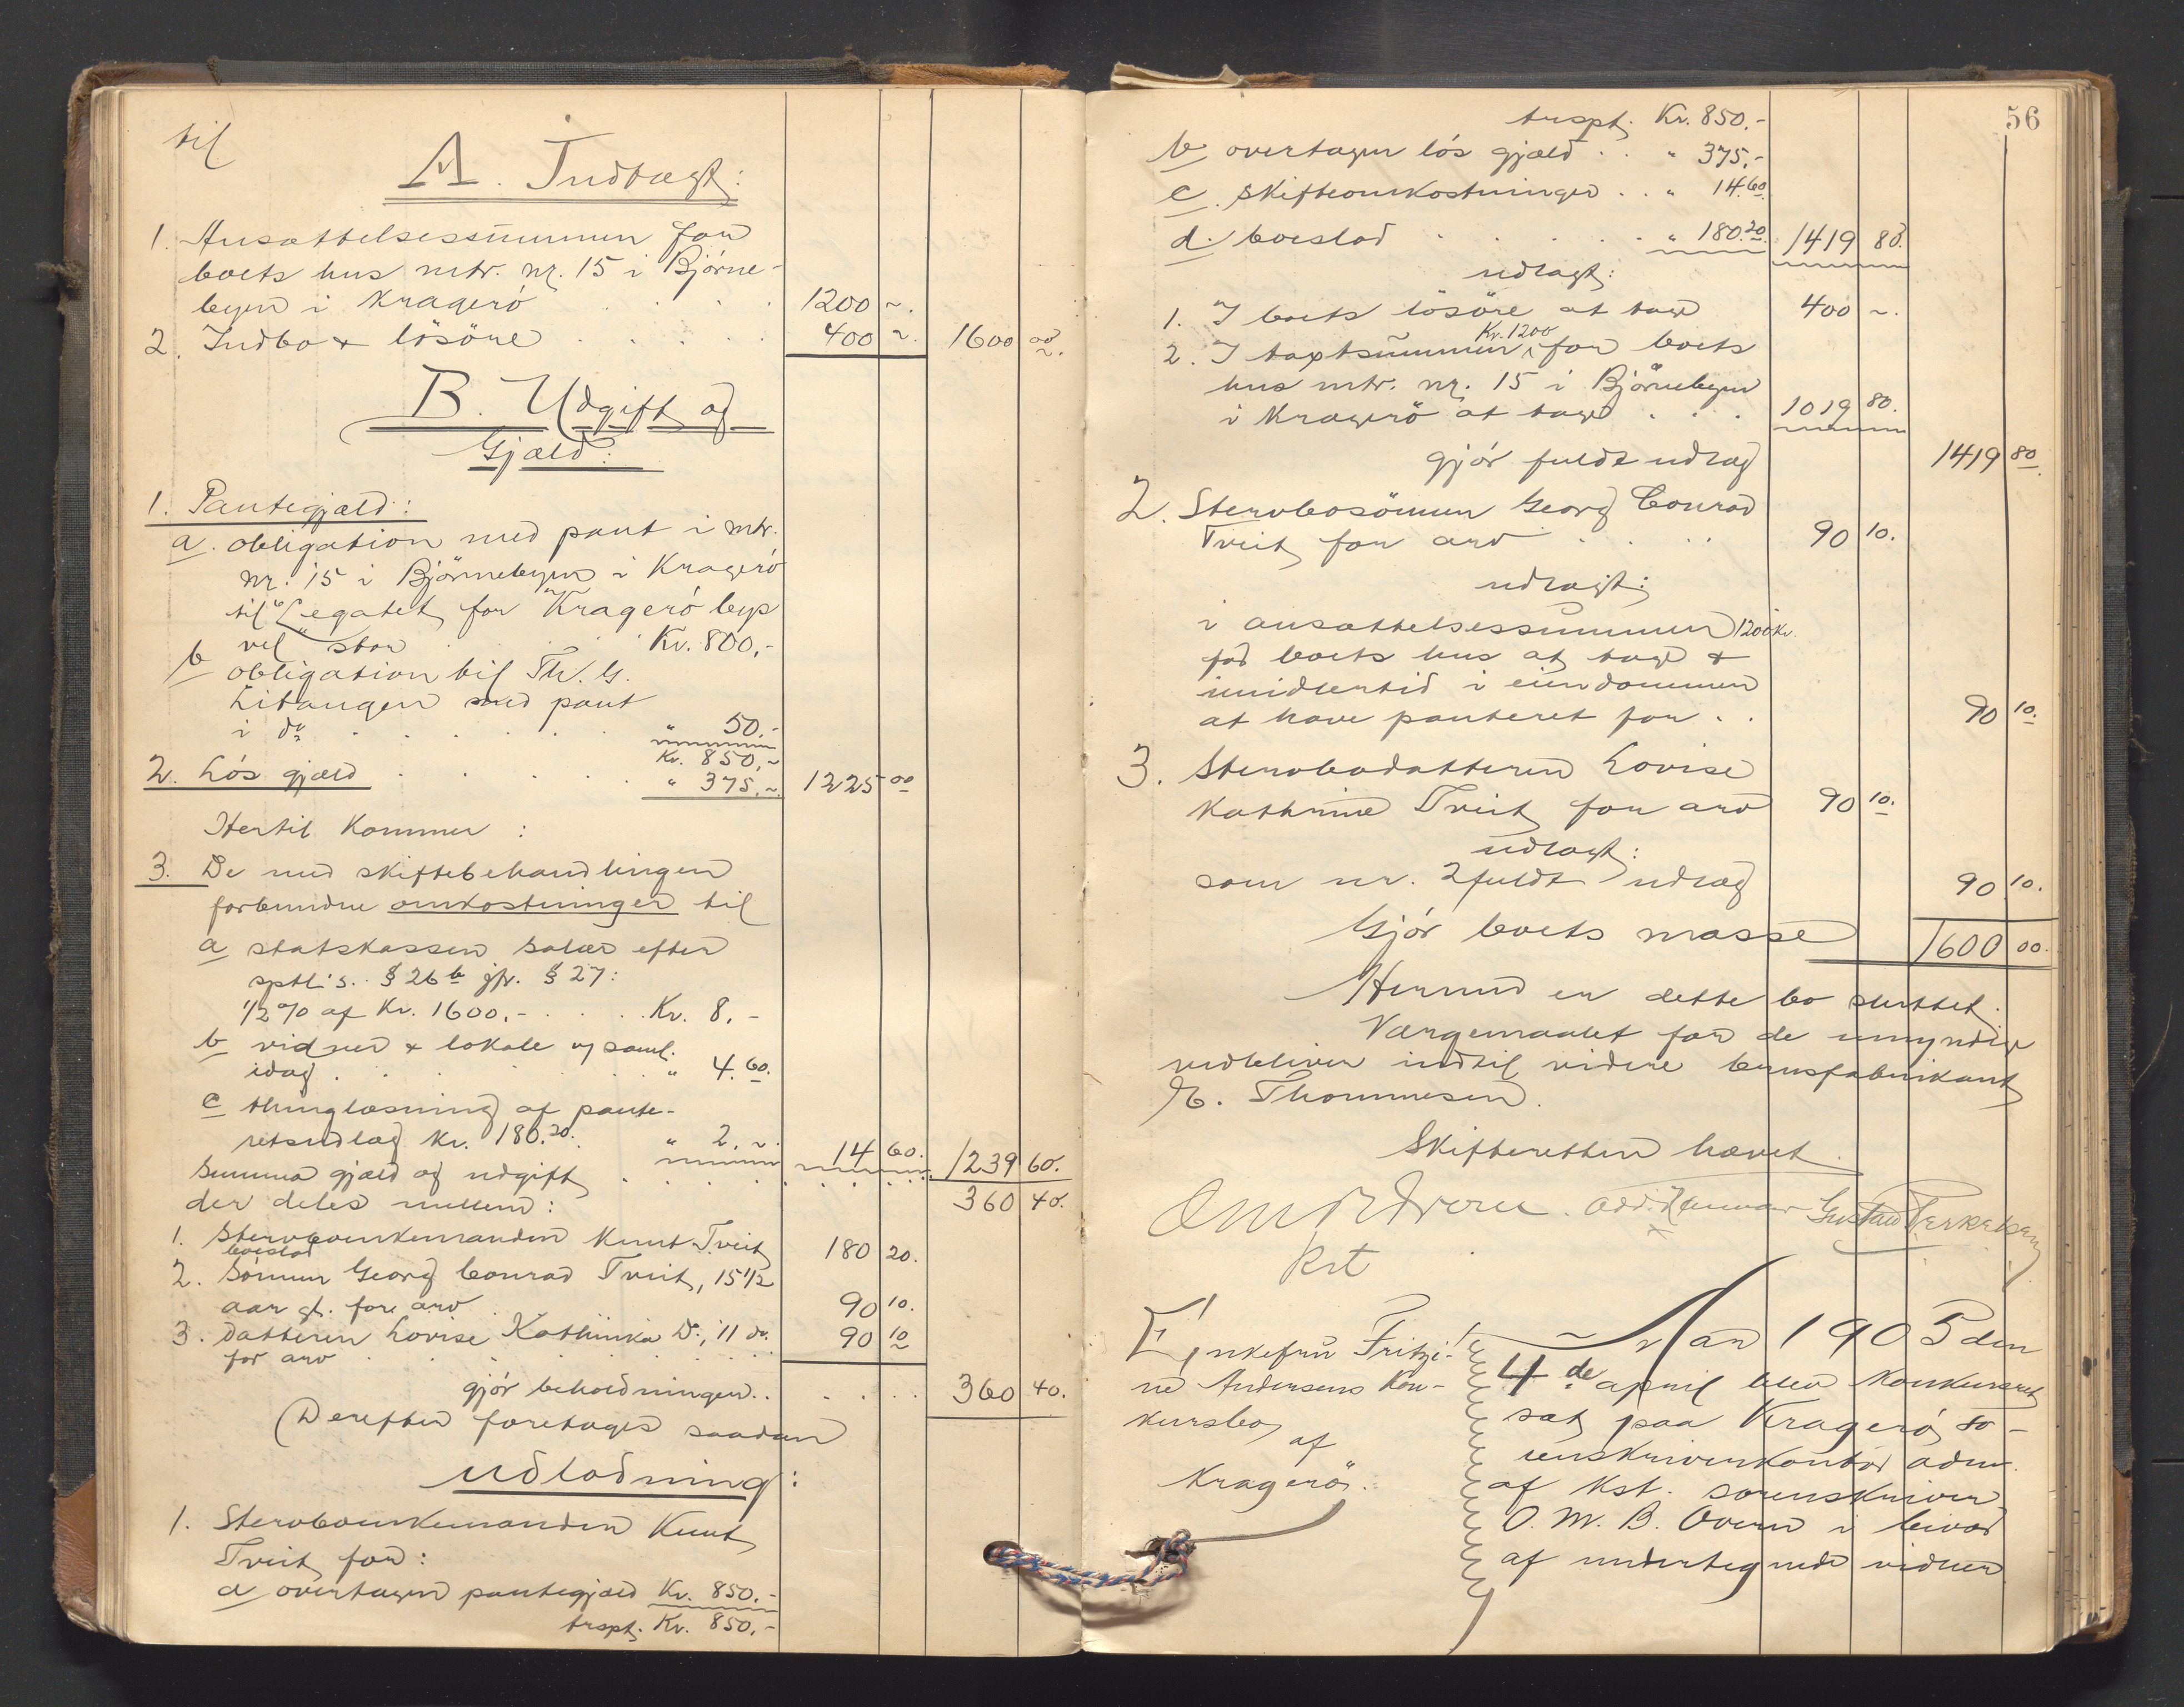 til
A. Indtægt:
1. Ansættelsessummen for
boets hus mtr. nr. 15 i Bjørne-
byen i Kragerö . . . 1200 ~.
2. Indbo & lösöre . . . . . 400 ~. 1600 00
B. Udgift og
Gjæld:
1. Pantegjæld:
a. obligation med pant i mtr.
nr. 15 i Björnebyen i Kragerö
til "Legatet for Kragerö bys
vel" stor . . . Kr. 800,-
b obligation til Th. G.
Litangen med pant
i do . . . . . " 50.-
Kr. 850,~
2. Lös gjæld . . . . . " 375.~. 1225 00
Hertil kommer :
3. De med skiftebehandlingen
forbundne omkostninger til
a statskassen salær efter
sptl's. § 26 b jfr. § 27:
1/2 % af Kr. 1600.- . . . Kr. 8.-
b vidner & lokale v/ saml.
idag . . . . . " 4.60.
c thinglæsning af pante-
retsudlæg kr. 180.20. " 2.~. 14 60. 1239 60.
Summa gjæld og udgift . . . . . 360 40.
der deles mellem:
1. Stervboenkemanden Knut Tveit
boeslod 180 20.
2. Sönnen Georg Conrad Tveit, 15 1/2
aar gl. for arv . 90 10.
3. datteren Lovise Kathinka Do., 11 do.
for arv . . . . . 90 10
gjör beholdningen . . . . . 360 40.
Derefter foretages saadan
udlodning:
1. Stervboenkemanden Knut
Tveit for:
a overtagen pantegjæld Kr. 850.-
trspt. Kr. 850.-
56
trspt. Kr. 850.-
b overtagen lös gjæld . . " 375.-
c. skifteomkostninger . . " 14.60.
d. boeslod . . . . . " 180.20 1419 80.
udlagt:
1. I boets lösöre at tage 400 ~.
Kr. 1200
2. I taxtsummen for boets
hus mtr. nr. 15 i Björnebyen
i Kragerö at tage . . . 1019 80.
gjör fuldt udlæg 1419 80.
2. Stervbosönnen Georg Conrad
Tveit for arv . . . . 90 10.
udlagt:
i ansættelsessummen 1200 kr.
for boets hus at tage &
imidlertid i eiendommen
at have panteret for . . 90 10.
3. Stervbodatteren Lovise
Kathrine Tveit for arv 90 10.
udlagt:
som nr. 2 fuldt udlæg 90 10.
Gjör boets masse 1600 00.
Hermed er dette bo sluttet.
Værgemaalet for de umyndige
vedbliver indtil videre brusfabrikant
E. Thommesen.
Skifteretten hævet.
OMBOvern. Gustav
kst
Enkefru Fritzi-
ne Andersens Kon-
kursbo
af
Kragerö.
Aar 1905 den
4de april blev Konkursret
sat paa Kragerö so-
renskriverkontor adm.
af kst. sorenskriver
O. M. B. Overn i bivær
af undertegnede vidner